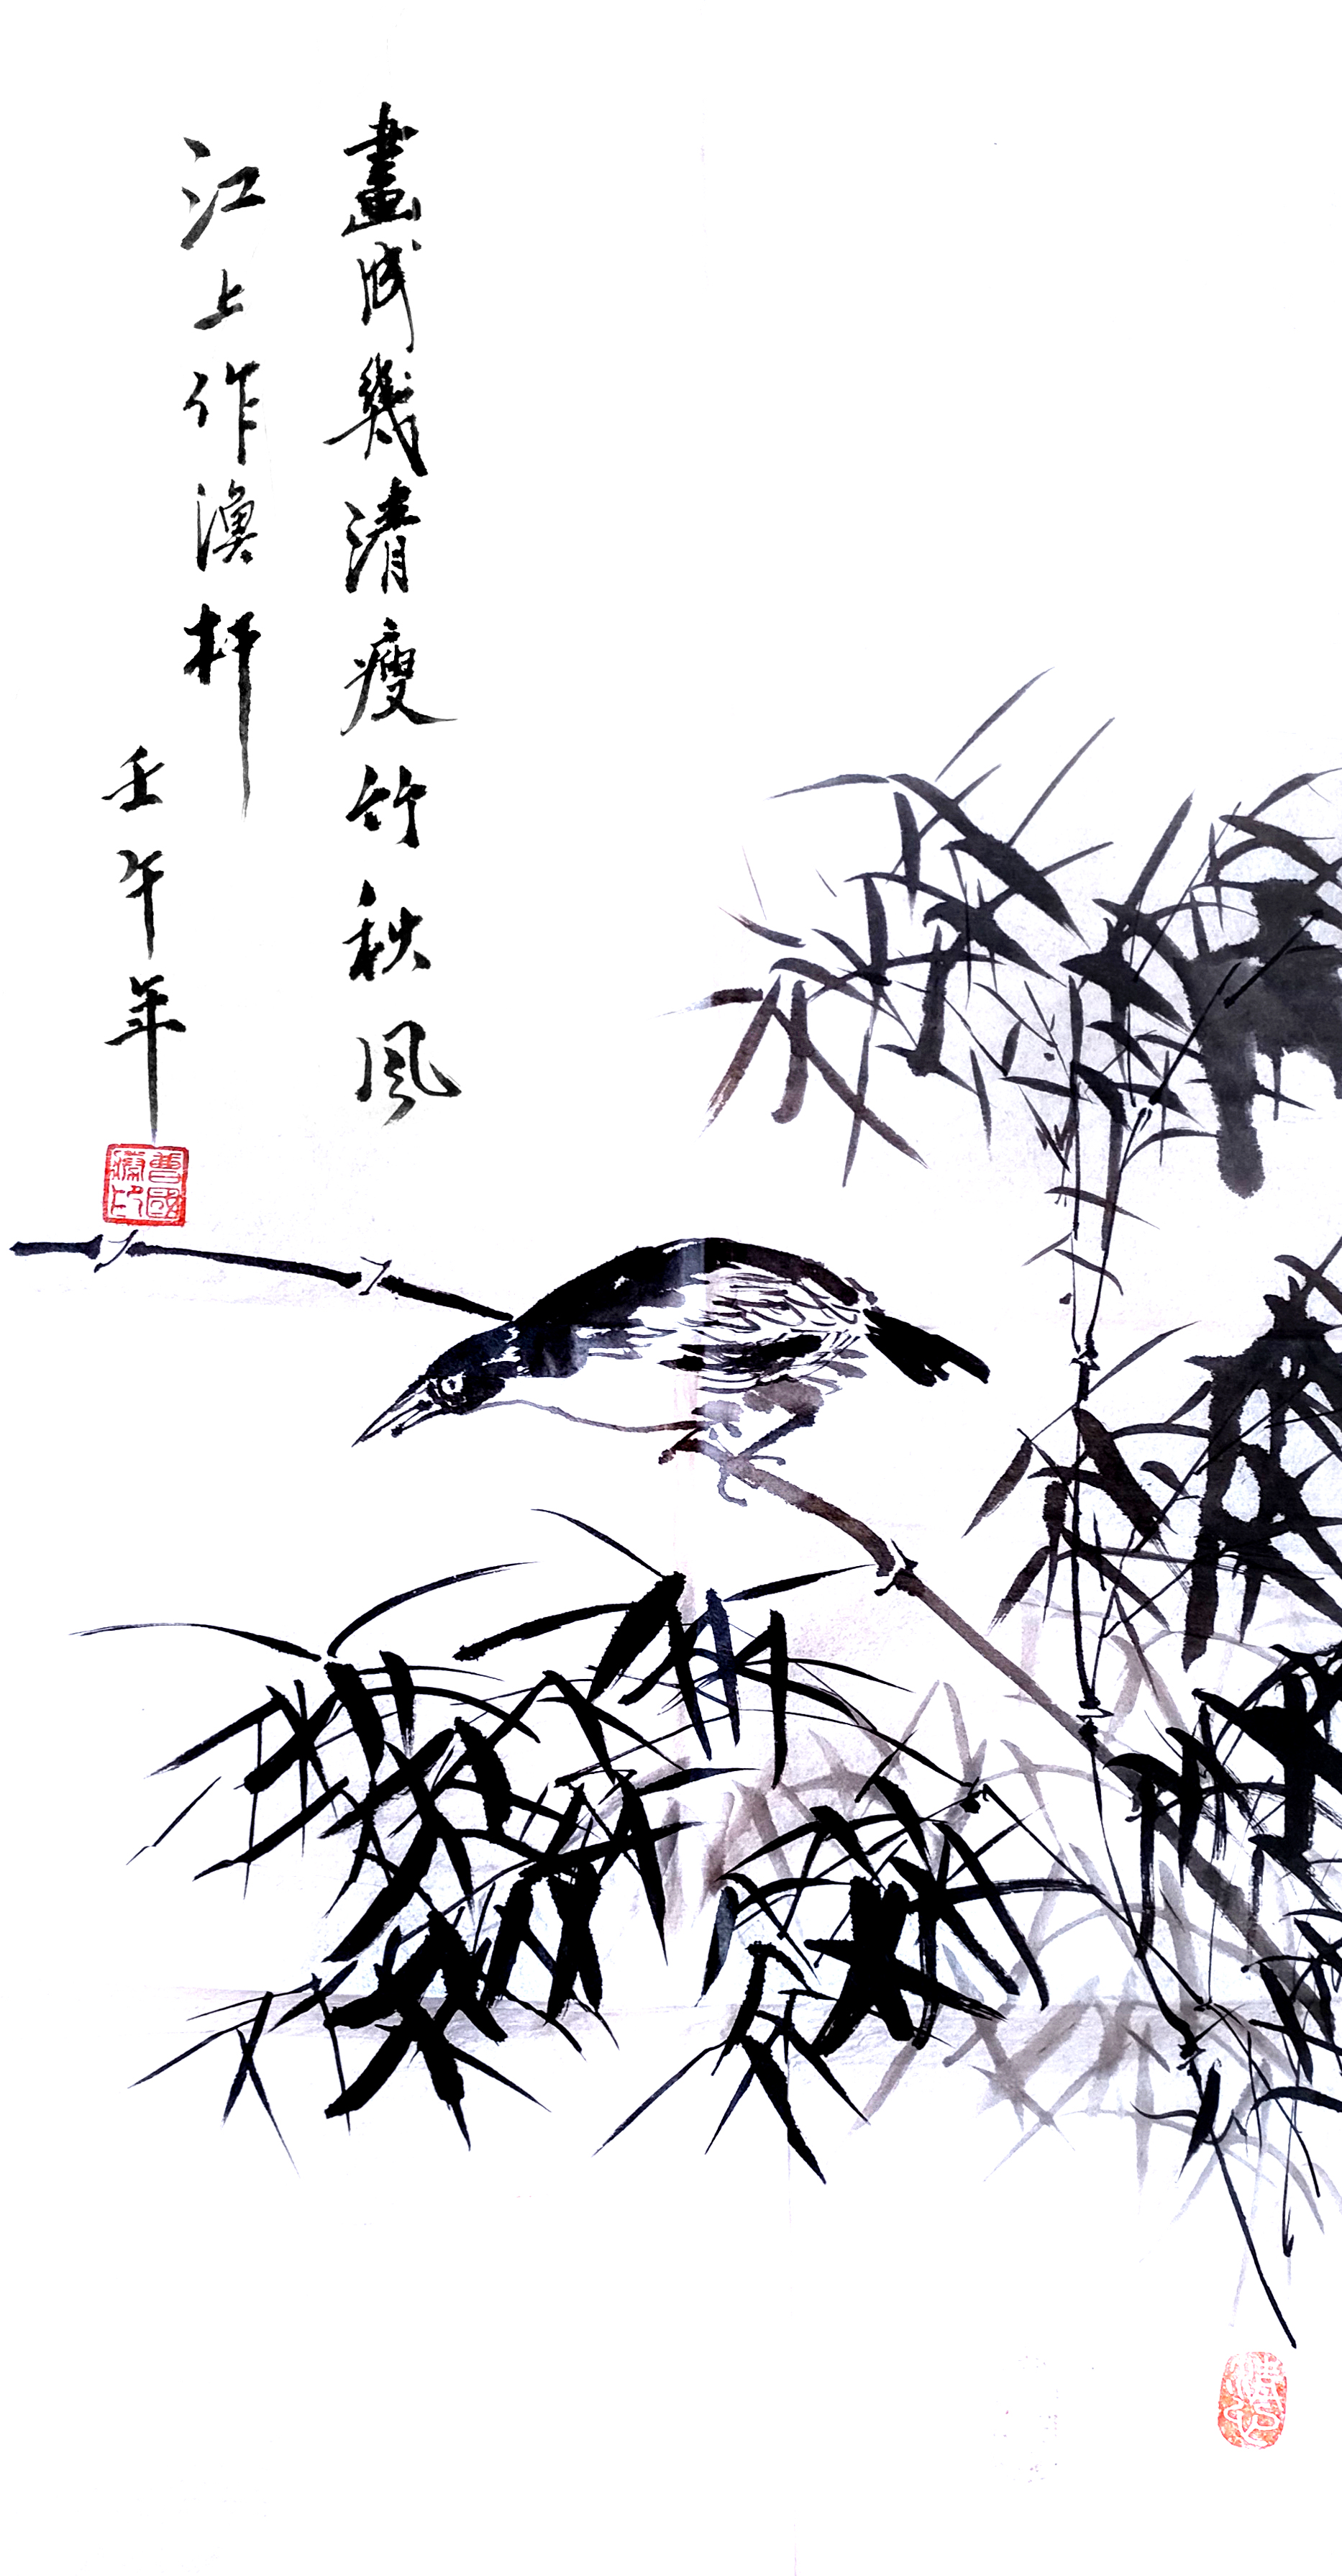 畫成幾清瘦竹秋風
江上作漁杆
壬午年